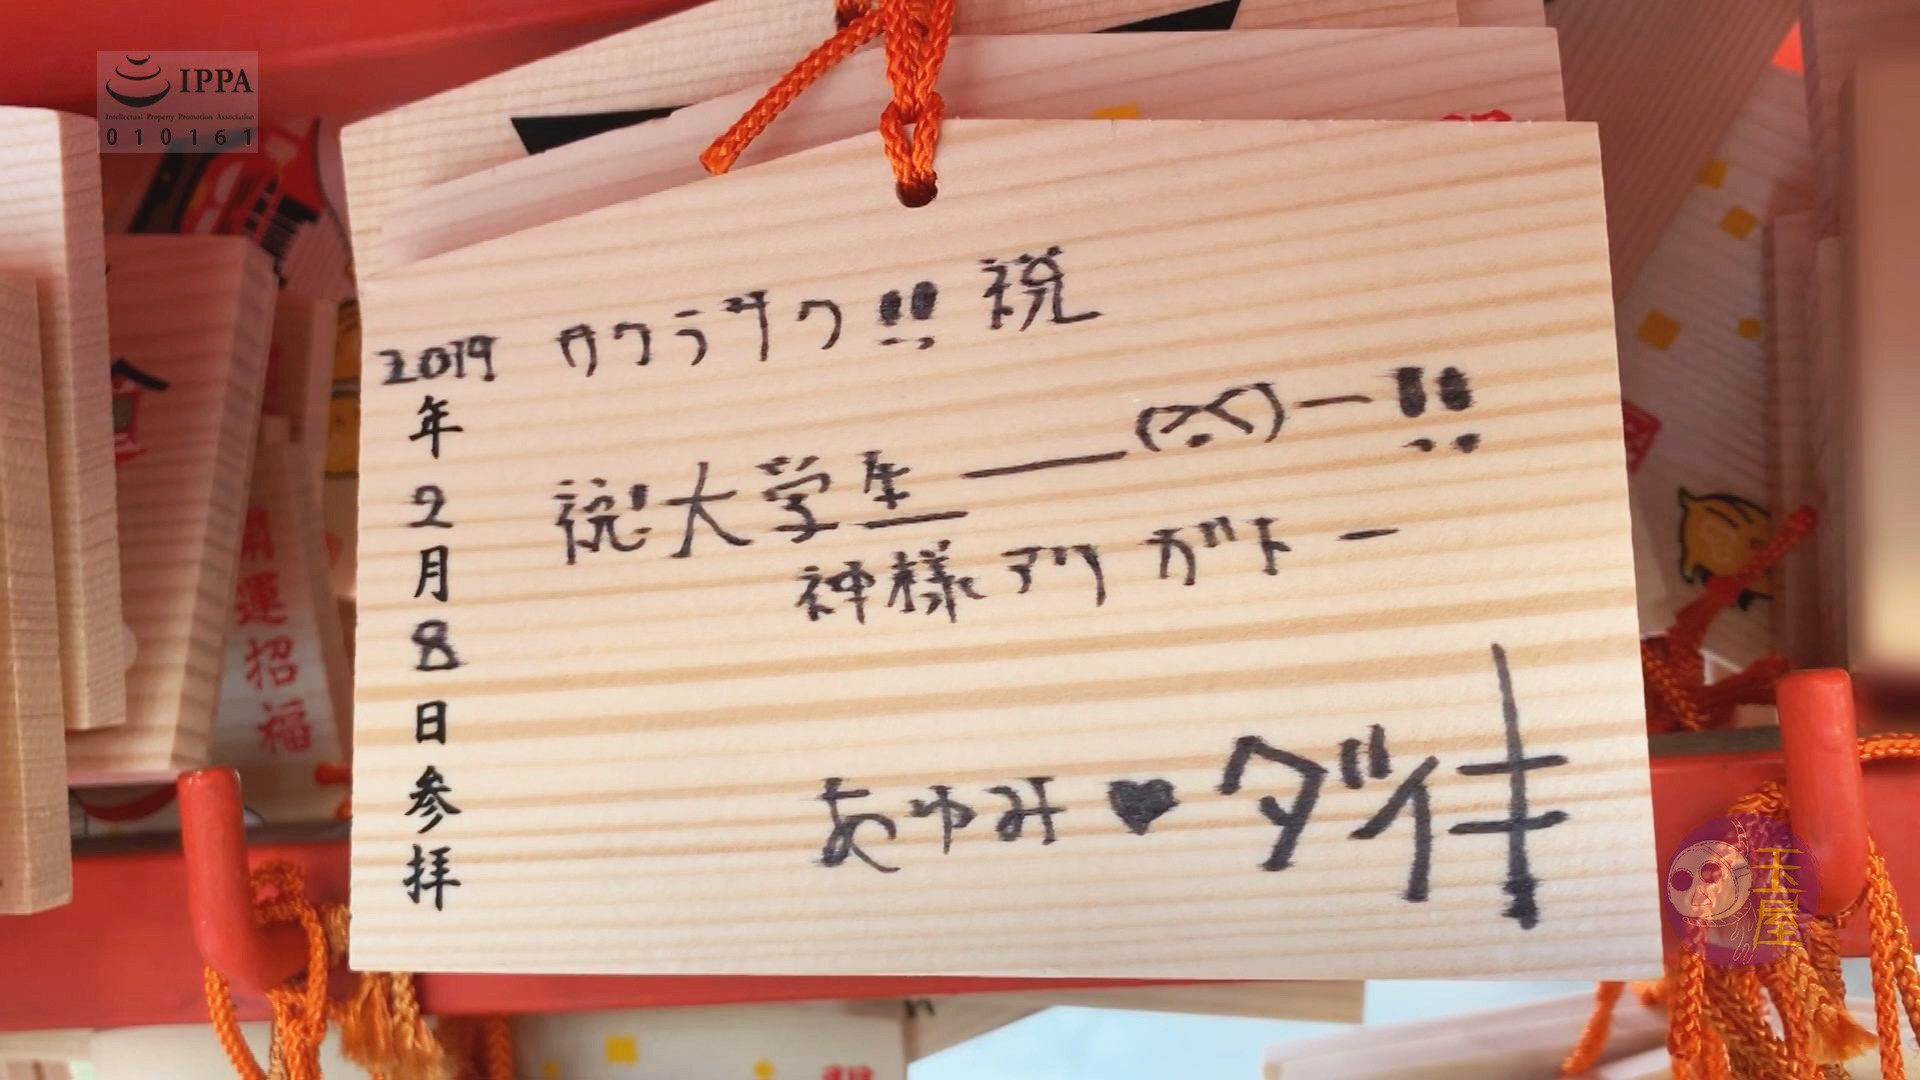 IPPA
Intellectual Property Promotion Association
010161
サクラサク!! 祝
祝!大学生――(>.<)ー!!
神様アリガトー
あゆみ♥ダイキ
2019年2月8日参拝
開運招福
玉屋